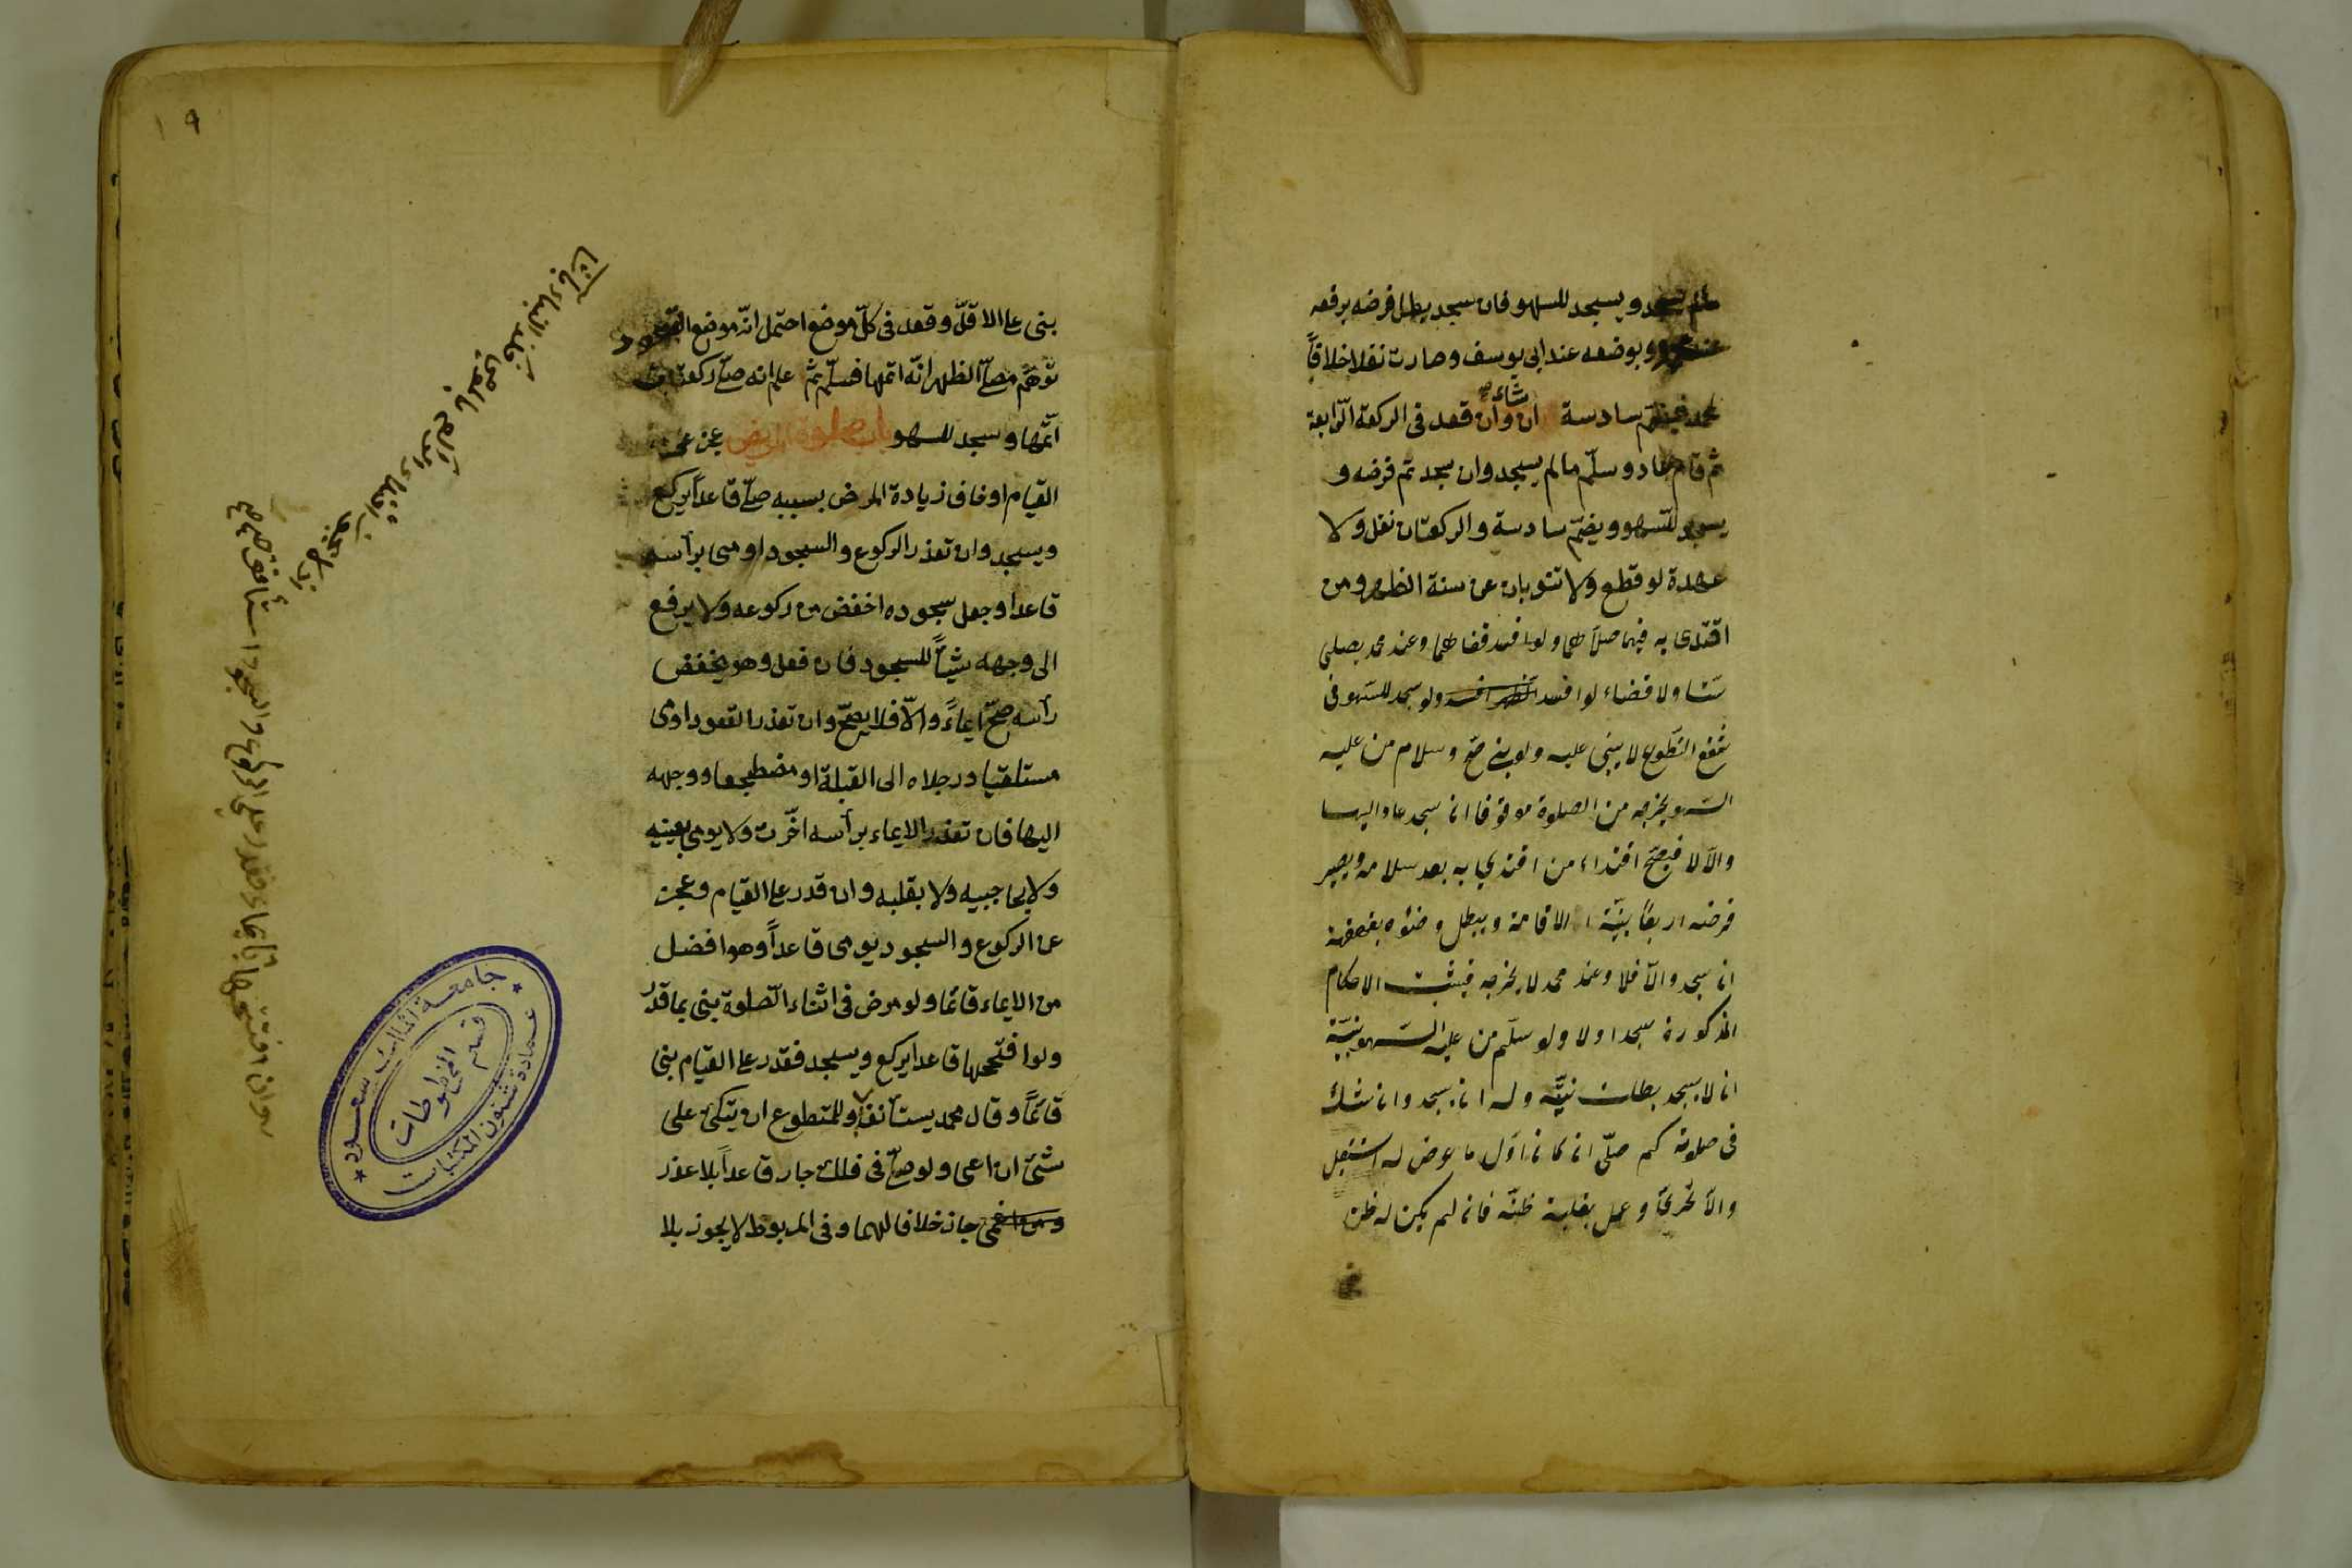 ما لم يسجد ويسجد للسهو فان سجد بطل فرضه برفعه
عند محمد وبوضعه عند ابى يوسف وصارت نفلا خلافاً
لمحمد فيضمّ سادسة ان شاء وان قعد فى الركعة الرّابعة
ثم قام عاد وسلّم ما لم يسجد وان سجد تم فرضه و
يسجد للسّهو ويضمّ سادسة والركعتان نفل ولا
عهدة لو قطع ولا تنوبان عن سنة الظهر ومن
اقتدى به فيهما صلاّهما ولو افسد قضاهما وعند محمد يصلى
ستّا ولا قضاء لو افسد ولو سجد للسّهو فى
شفع التّطوع لا يبنى عليه ولو بنى صحّ وسلام من عليه
السّهو يخرجه من الصلوة موقوفا ان سجد عاد اليها
والاّ لا فيصحّ اقتداء من اقتدى به بعد سلامه ويصير
فرضه اربعاً بنيّة الاقامة ويبطل وضوءه بقهقهة
ان سجد والاّ فلا وعند محمد لا يخرجه فيثبت الاحكام
المذكورة سجد اولا ولو سلّم من عليه السّهو بنيّة
ان لا يسجد بطلت نيّته وله ان يسجد وان شك
فى صلوته كم صلّى ان كان اوّل ما عرض له استقبل
والاّ تحرّى وعمل بغلبة ظنّه فان لم يكن له ظن
١٩
بنى على الاقلّ وقعد فى كلّ موضع احتمل انّه موضع القعود
توهّم مصلّى الظهر انّه اتمها فسلّم ثمّ علم انه صلّى ركعتين
اتمّها وسجد للسهو باب صلوة المريض عجز عن
القيام او خاف زيادة المرض بسببه صلّى قاعداً يركع
ويسجد وان تعذر الركوع والسجود اومى برأسه
قاعدا وجعل سجوده اخفض من ركوعه ولا يرفع
الى وجهه شيئاً للسجود فان فعل وهو يخفض
رأسه صحّ ايماءً والاّ فلا يصحّ وان تعذر القعود اومى
مستلقيا ورجلاه الى القبلة او مضطجعا ووجهه
اليها فان تعذر الايماء برأسه اخّرت ولا يومى بعينيه
ولا بحاجبيه ولا بقلبه وان قدر على القيام وعجز
عن الركوع والسجود يومى قاعداً وهو افضل
من الايماء قائما ولو مرض فى اثناء الصّلوة بنى بما قدر
ولو افتتحها قاعدا يركع ويسجد فقدر على القيام بنى
قائماً وقال محمد يستأنف وللمتطوع ان يتكئ على
شئ ان اعى ولو صلّى فى فلك جار قاعداً بلا عذر
جاز خلافا لهما وفى المربوط لا يجوز بلا
وان افتتحها بايماء فقدر على الركوع والسجود استأنف
جامعة الملك سعود
قسم المخطوطات
عمادة شئون المكتبات